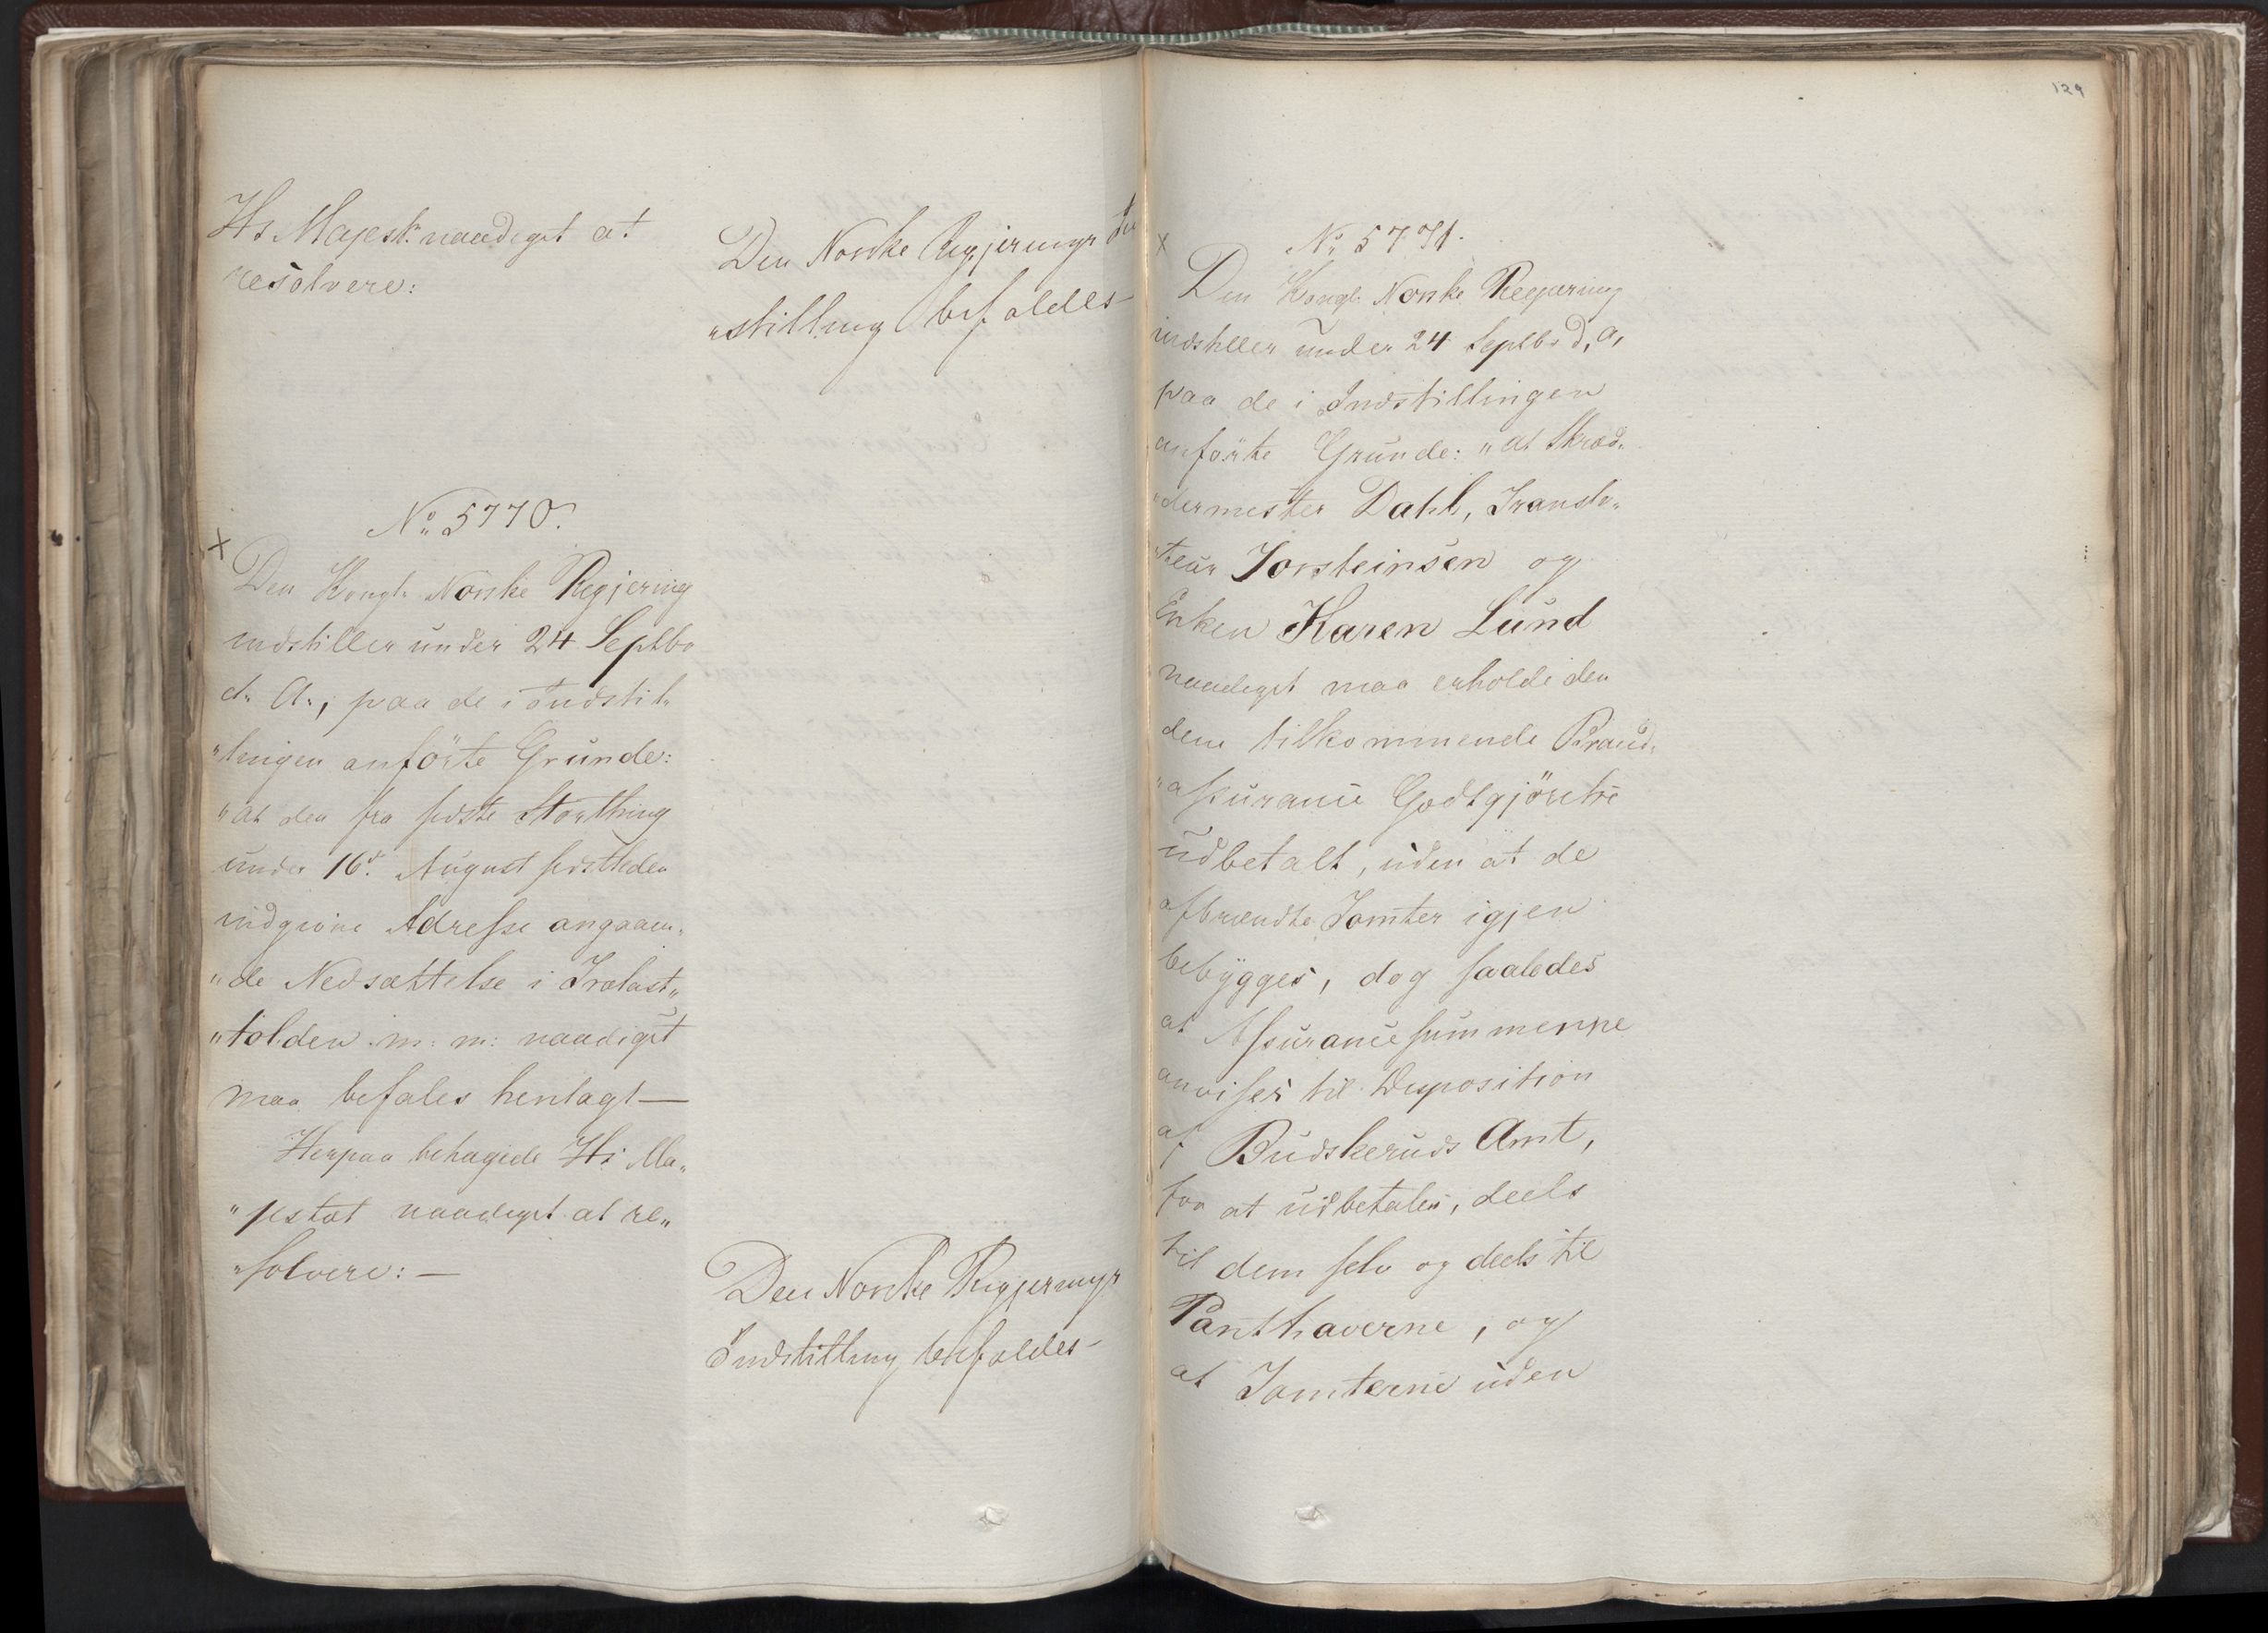 Hs Majest: naadigst at
resolvere:
Den Norske Regjerings In
"stilling bifaldes
No 5770.
x
Den Kongl. Norske Regjering
indstiller under 24 Septbr
d. A., paa de i Indstil„
„lingen anförte Grunde:
„at den fra sidste Storthing
under 16d. August sidstleden
indgivne Adresse angaaen„
„de Nedsættelse i Trælast„
„tolden m: m: naadigst
maa befales henlagt —
Herpaa behagede Hs Ma„
„jestæt naadigst at re„
„solvere: —
Den Norske Regjerings
Indstilling bifaldes
129
x
No 5771.
Den Kongl. Norske Regjering
indstiller under 24 Septbr d. A.
paa de i Indstillingen
anförte Grunde: „at Skræd„
„dermester Dahl, Transla„
„teur Torsteinsen og
Enken Karen Lund
naadigst maa erholde den
dem tilkommende Brand„
„assurance Godtgjörelse
udbetalt, uden at de
afbrændte Tomter igjen
bebygges, dog saaledes
at Assurancesummerne
anvises til Disposition
af Budskeruds Amt,
for at udbetales, deels
til dem selv og deels til
Panthaverne, og
at Tomterne uden